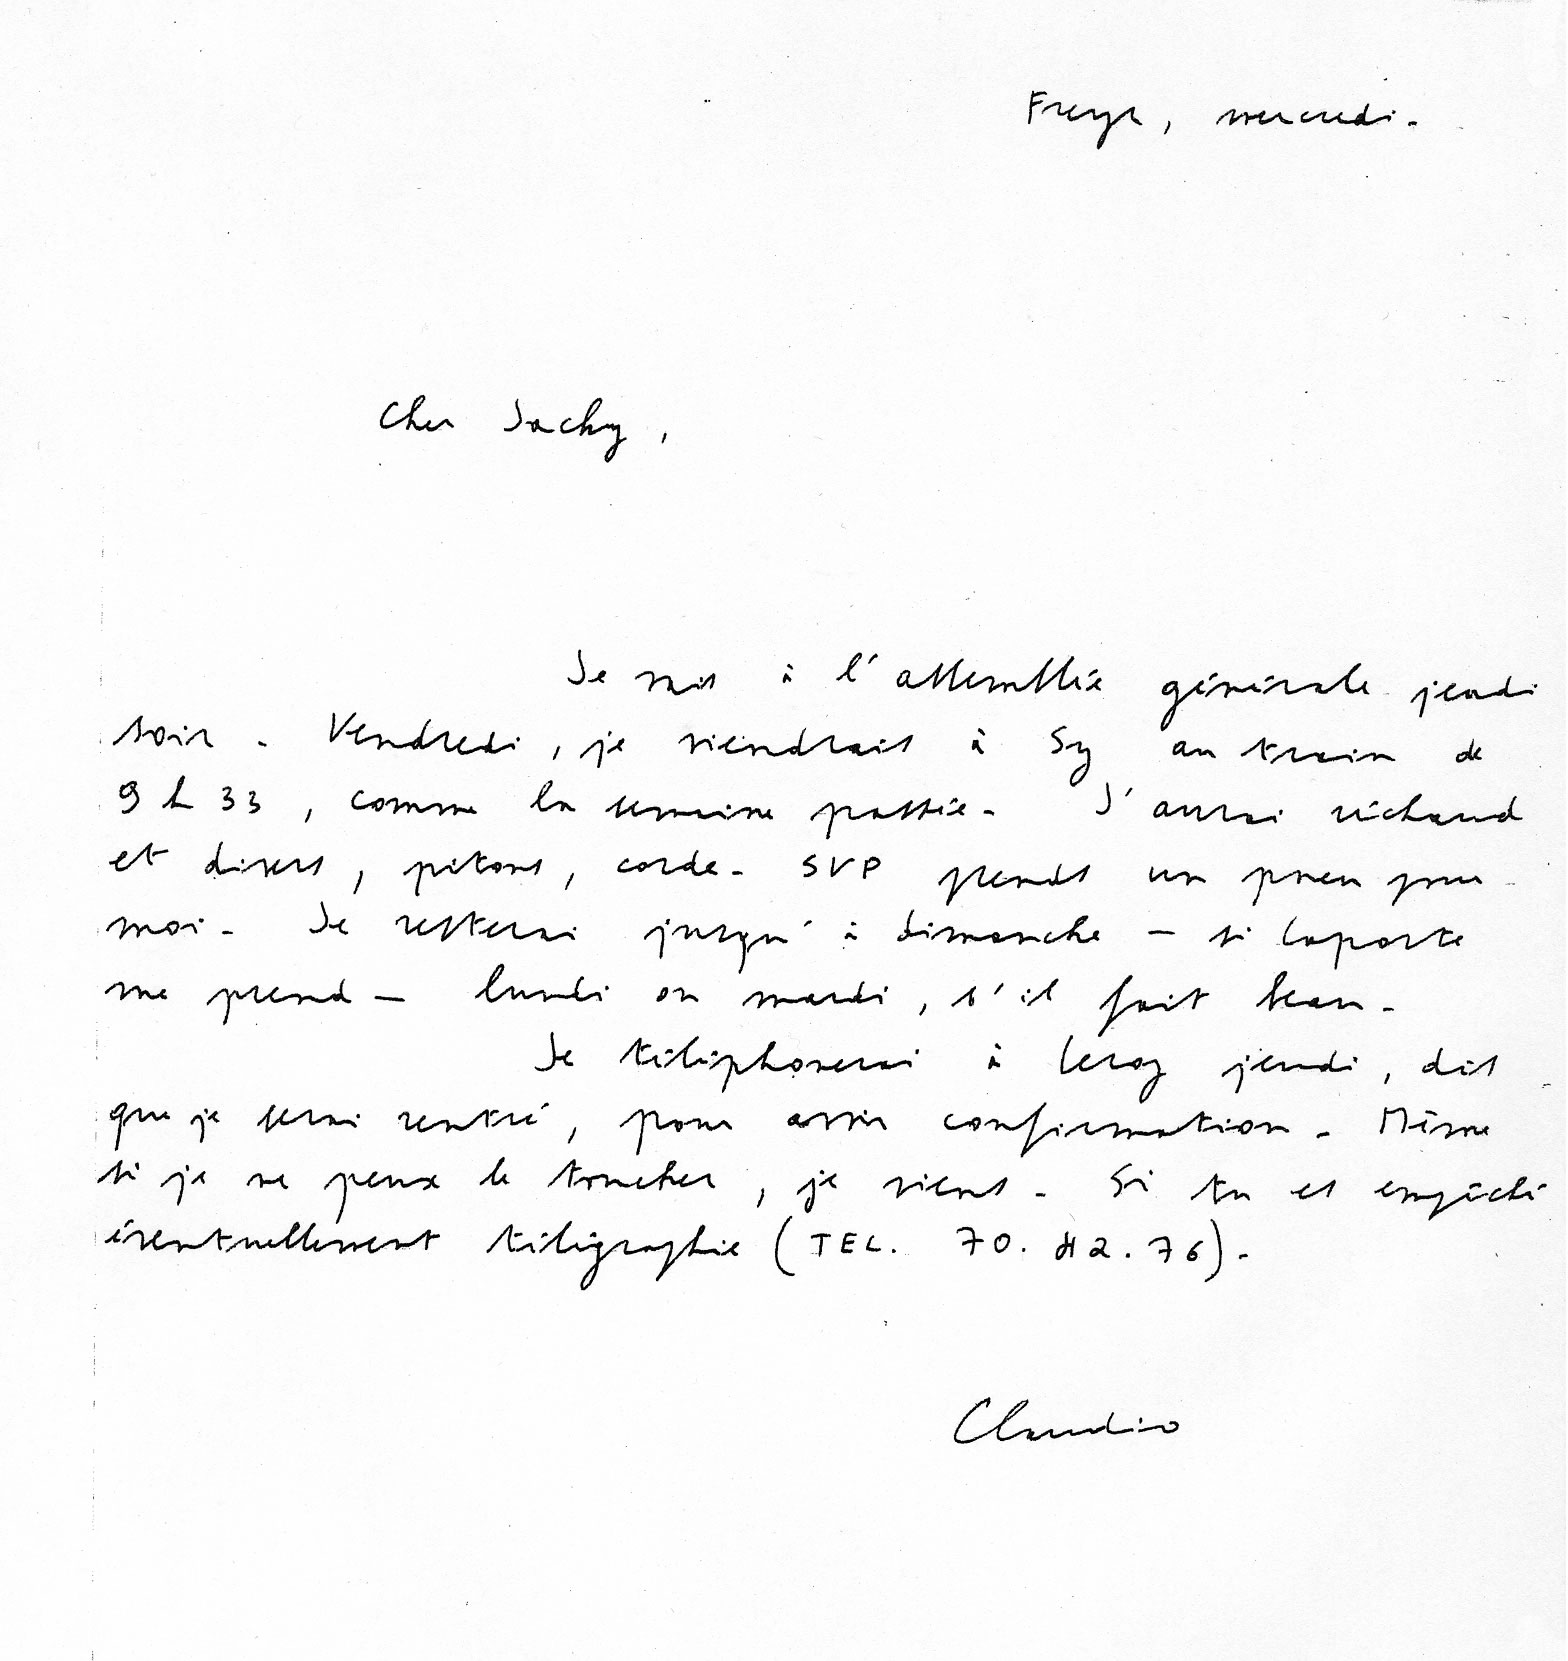 Freyr, mercredi.
Cher Jacky,
Je vais à l'assemblée générale jeudi
soir. Vendredi, je viendrais à Sy au train de
9 h 33, comme la semaine passée. J'aurai réchaud
et divers, pitons, corde. SVP prends un pneu pour
moi. Je resterai jusqu'à dimanche — si Laporte
me prend — lundi ou mardi, s'il fait beau.
Je téléphonerai à Leroy jeudi, dès
que je serai rentré, pour avoir confirmation. Même
si je ne peux le toucher, je viens. Si tu es empêché
éventuellement téléphone (TEL. 70.42.76).
Claudio